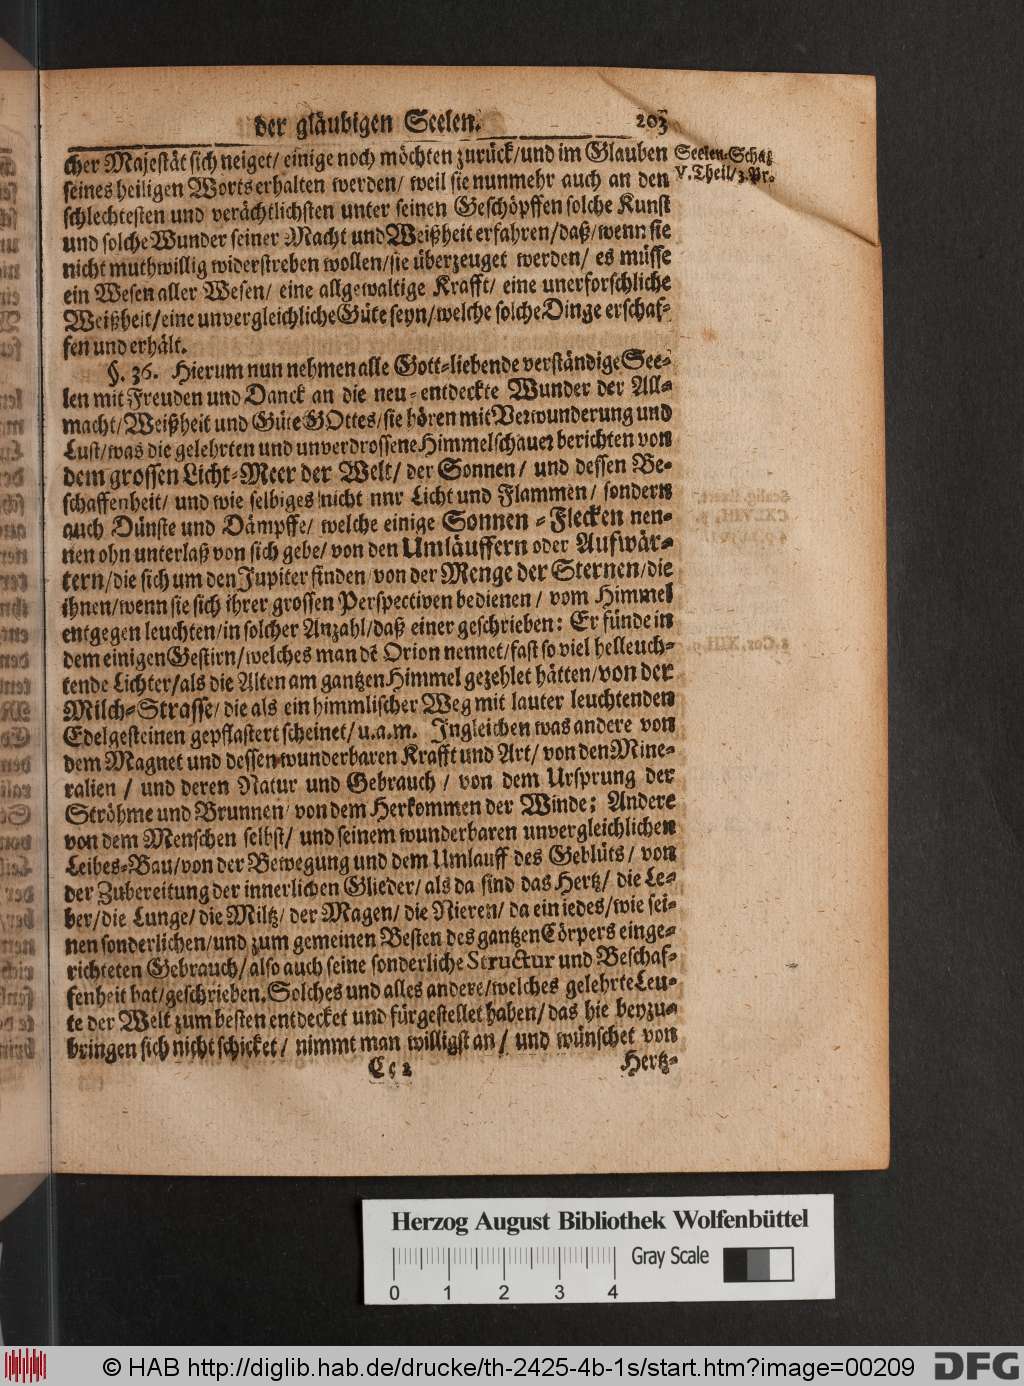 der gläubigen Seelen. 203
cher Majestät sich neiget/ einige noch möchten zurück/und im Glauben
Seelen-Schatz
V. Theil/3. Pr.
seines heiligen Worts erhalten werden/ weil sie nunmehr auch an den
schlechtesten und verächtlichsten unter seinen Geschöpffen solche Kunst
und solche Wunder seiner Macht und Weißheit erfahren/daß/wenn sie
nicht muthwillig widerstreben wollen/sie überzeuget werden/ es müsse
ein Wesen aller Wesen/ eine allgewaltige Krafft/ eine unerforschliche
Weißheit/eine unvergleichliche Güte seyn/welche solche Dinge erschaf-
fen und erhält.
§. 36. Hierum nun nehmen alle Gott-liebende verständige See-
len mit Freuden und Danck an die neu-entdeckte Wunder der All-
macht/Weißheit und Güte GOttes/sie hören mit Verwunderung und
Lust/was die gelehrten und unverdrossene Himmelschauer berichten von
dem grossen Licht-Meer der Welt/ der Sonnen/ und dessen Be-
schaffenheit/ und wie selbiges nicht nur Licht und Flammen/ sondern
auch Dünste und Dämpffe/ welche einige Sonnen-Flecken nen-
nen ohn unterlaß von sich gebe/ von den Umläuffern oder Aufwär-
tern/die sich um den Jupiter finden/von der Menge der Sternen/die
ihnen/wenn sie sich ihrer grossen Perspectiven bedienen/ vom Himmel
entgegen leuchten/in solcher Anzahl/daß einer geschrieben: Er fünde in
dem einigen Gestirn/welches man dē Orion nennet/fast so viel helleuch-
tende Lichter/als die Alten am gantzen Himmel gezehlet hätten/von der
Milch-Strasse/die als ein himmlischer Weg mit lauter leuchtenden
Edelgesteinen gepflastert scheinet/u.a.m. Ingleichen was andere von
dem Magnet und dessen wunderbaren Krafft und Art/ von den Mine-
ralien/ und deren Natur und Gebrauch/ von dem Ursprung der
Ströhme und Brunnen/ von dem Herkommen der Winde; Andere
von dem Menschen selbst/ und seinem wunderbaren unvergleichlichen
Leibes-Bau/von der Bewegung und dem Umlauff des Geblüts/ von
der Zubereitung der innerlichen Glieder/als da sind das Hertz/ die Le-
ber/die Lunge/die Miltz/ der Magen/ die Nieren/ da ein iedes/wie sei-
nen sonderlichen/und zum gemeinen Besten des gantzen Cörpers einge-
richteten Gebrauch/also auch seine sonderliche Structur und Beschaf-
fenheit hat/geschrieben. Solches und alles andere/welches gelehrte Leu-
te der Welt zum besten entdecket und fürgestellet haben/das hie beyzu-
bringen sich nicht schicket/ nimmt man willigst an/ und wünschet von
Cc 2 Hertz-
Herzog August Bibliothek Wolfenbüttel
Gray Scale
0 1 2 3 4
© HAB http://diglib.hab.de/drucke/th-2425-4b-1s/start.htm?image=00209
DFG